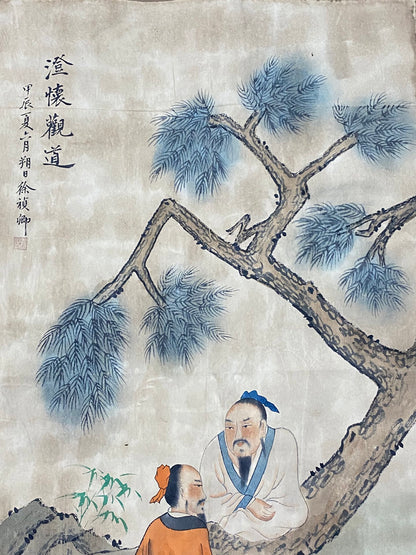 澄懷觀道
甲辰夏六月朔日徐禎卿